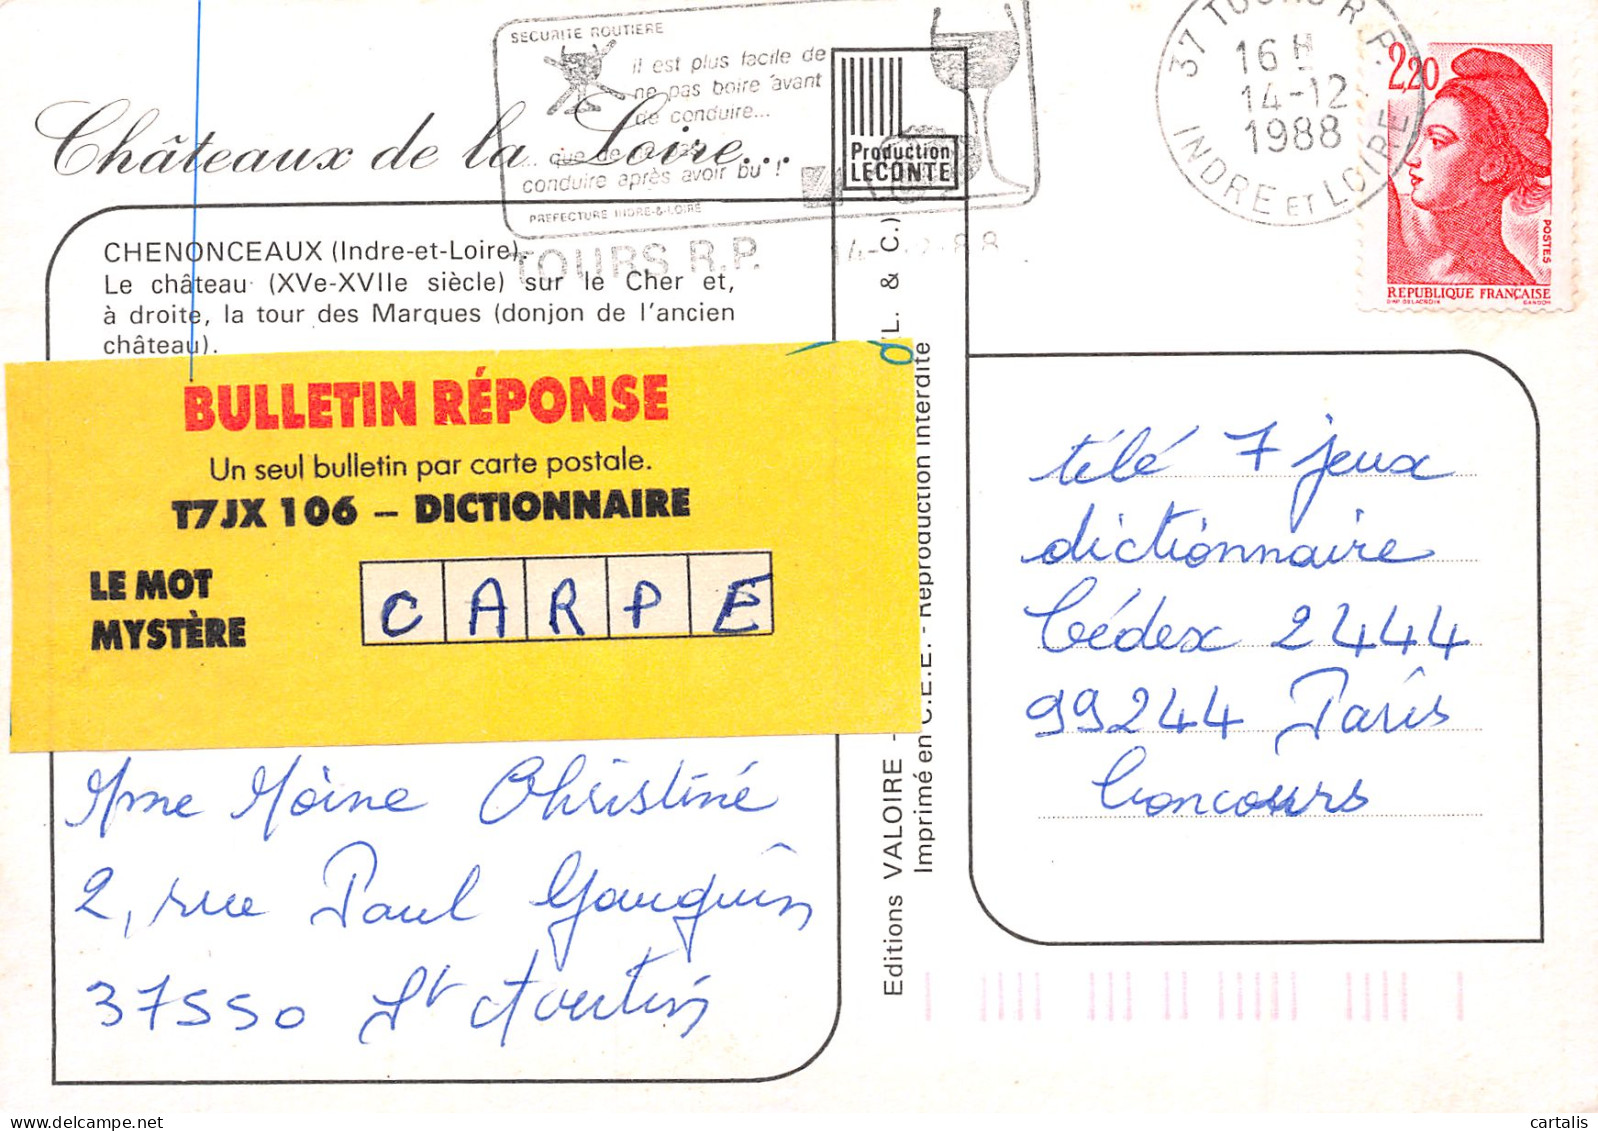 SECURITE ROUTIERE
il est plus facile de
ne pas boire avant
de conduire...
... que de
conduire après avoir bu !
PREFECTURE INDRE-&-LOIRE
TOURS R.P.
37 TOURS R.P.
16 H
14-12
1988
INDRE ET LOIRE
2,20
POSTES
REPUBLIQUE FRANÇAISE
D'AP. DELACROIX GANDON
Châteaux de la Loire...
Production
LECONTE
CHENONCEAUX (Indre-et-Loire).
Le château (XVe-XVIIe siècle) sur le Cher et,
à droite, la tour des Marques (donjon de l'ancien
château).
BULLETIN RÉPONSE
Un seul bulletin par carte postale.
T7JX 106 – DICTIONNAIRE
LE MOT
MYSTÈRE
CARPE
Mme Moine Christine
2, rue Paul Gauguin
37550 St Avertin
Editions VALOIRE -
(L. & C.)
Imprimé en C.E.E. - Reproduction interdite
télé 7 jeux
dictionnaire
Cédex 2444
99244 Paris
Concours
cartalis